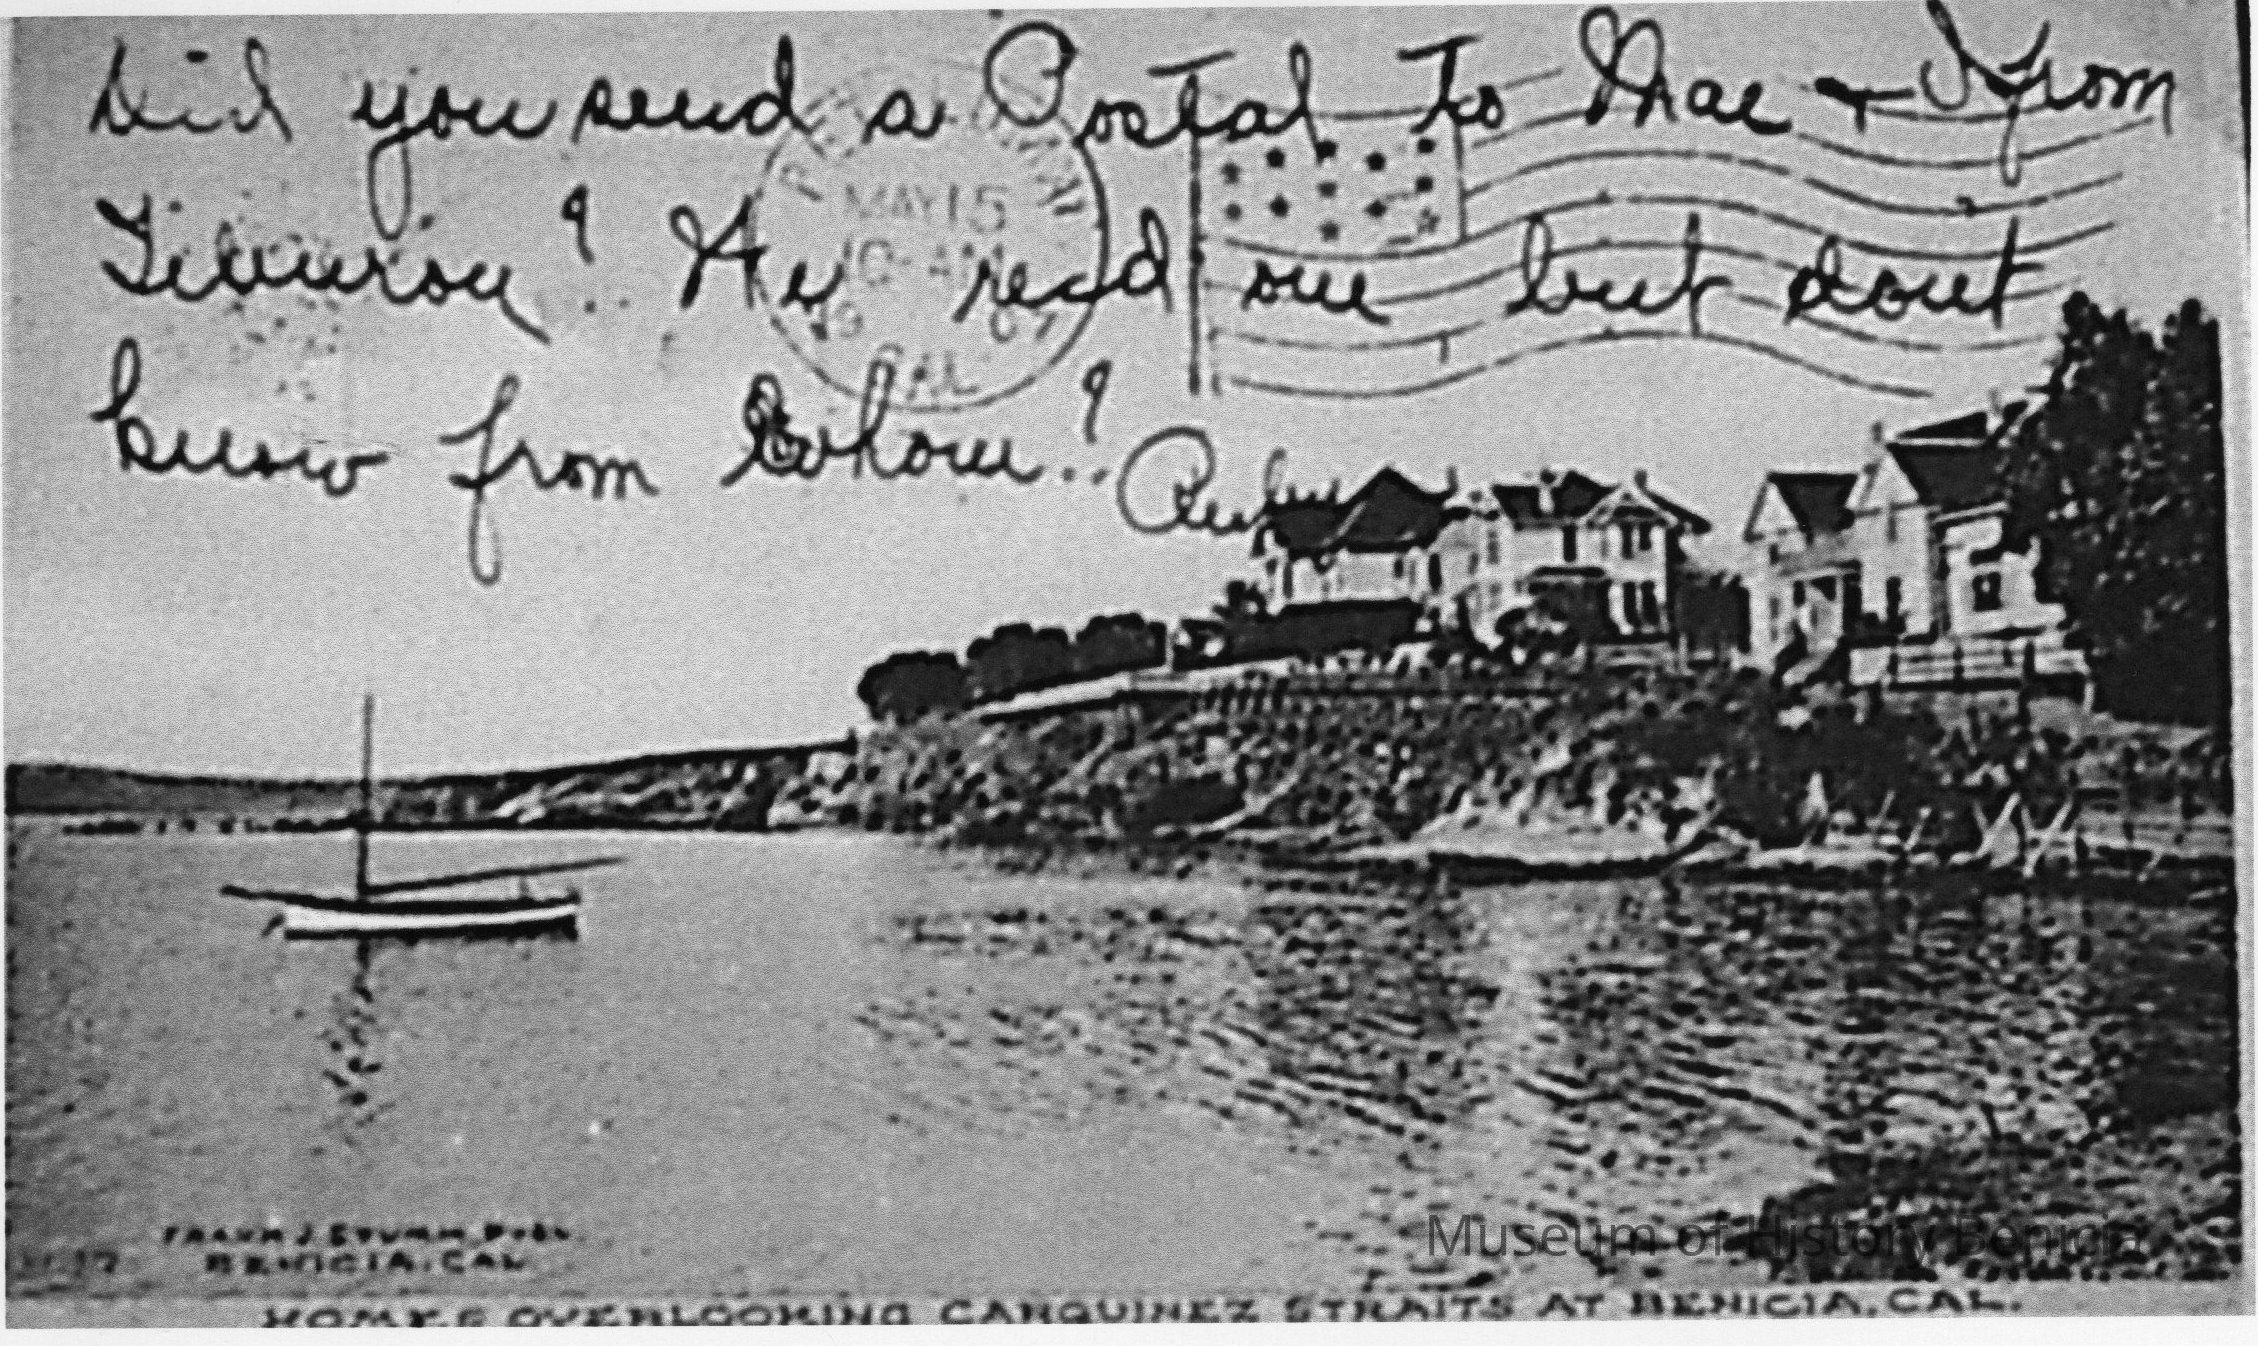 Did you send a Postal to Mae + I from
Tiburon? We recd one but dont
know from whom?
MAY 15
10-AM
19 07
CAL
FRANK J. STUMM, PUBL.
BENICIA, CAL.
HOMES OVERLOOKING CARQUINEZ STRAITS AT BENICIA, CAL.
Museum of History Benicia